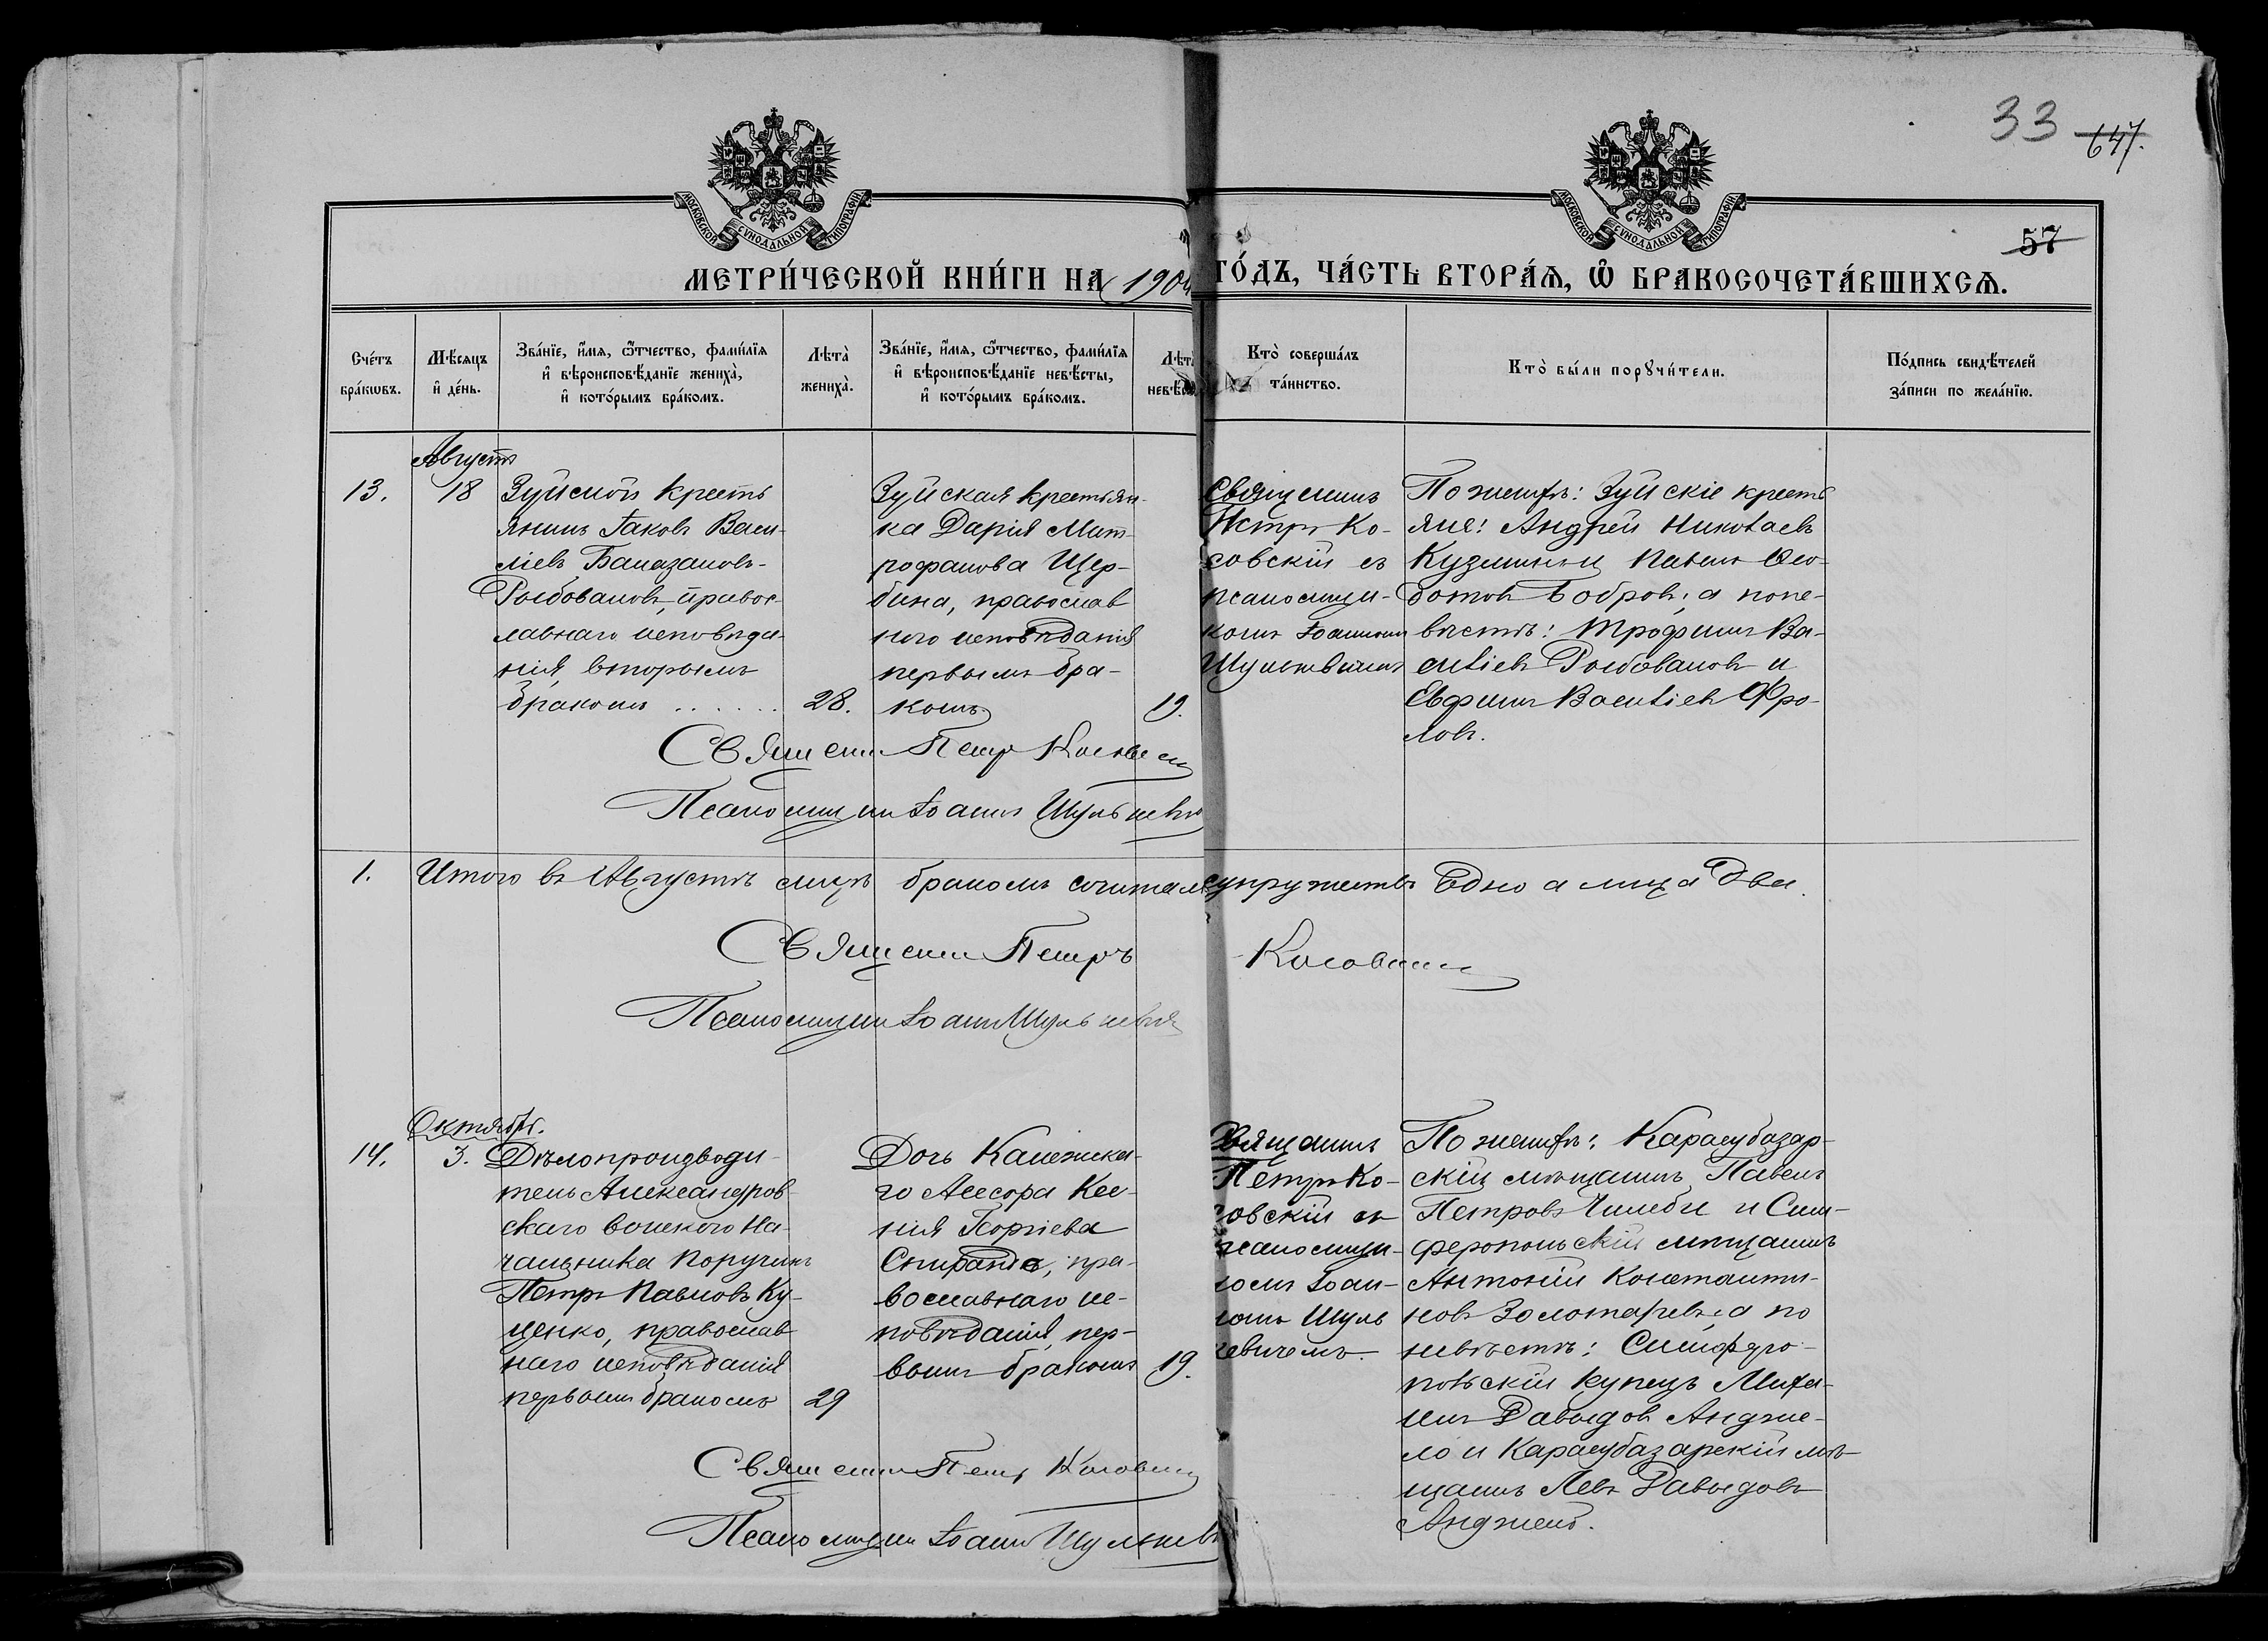 33
647.
57
МОСКОВСКОЙ СѴНОДАЛЬНОЙ ТИПОГРАФІИ
МОСКОВСКОЙ СѴНОДАЛЬНОЙ ТИПОГРАФІИ
МЕТРИ́ЧЕСКОЙ КНИ́ГИ НА 1904
ГО́ДЪ, ЧА́СТЬ ВТОРА́Ѧ, Ѽ БРАКОСОЧЕТА́ВШИХСѦ.
Сче́тъ бра́кѡвъ.
Мѣ́сяцъ и҆ де́нь.
Зва́нїе, и҆́мѧ, ѻ҆́тчество, фами́лїѧ
и҆ вѣроисповѣ́данїе жениха̀,
и҆ кото́рымъ бра́комъ.
Лѣта̀ жениха̀.
Зва́нїе, и҆́мѧ, ѻ҆́тчество, фами́лїѧ
и҆ вѣроисповѣ́данїе невѣ́сты,
и҆ кото́рымъ бра́комъ.
Лѣта̀
Кто̀ соверша́лъ та́инство.
Кто̀ бы́ли порꙋчи́тели.
По́дпись свидѣ́телей за́писи по жела́нїю.
Августъ
13.
18
Зуйской кресть
янинъ Іаковъ Васи-
ліевъ
Рыбованов, правос-
лавнаго исповѣда-
нія, вторымъ
бракомъ . . . . . .
28.
Зуйская крестьян-
ка Дарія Мит-
рофанова Щер-
бина, православ
ного исповѣданія
первымъ бра-
комъ.
19.
Священникъ
Петръ Ко-
совскій съ
псаломщи-
комъ Іоанномъ
Шулькевичемъ
По женихѣ: Зуйскіе кресть
яне: Андрей Николаевъ
Кузминъ и Павелъ Ѳео-
дотовъ Бобровъ; а по не-
вѣстѣ: Трофимъ Ва-
силіевъ Рыбованов и
Евфимъ Василіевъ Фро-
ловъ.
Священ. Петръ Косовскій
Псаломщик Іоаннъ Шулькевичъ
1.
Итого въ Августѣ мцѣ бракомъ сочетал. супружествъ Едно а лица два.
Священ. Петръ Косовскій
Псаломщик Іоанн Шулькевичъ
Октябрь.
14.
3.
Дѣлопроизводи-
тель Александров-
скаго воинского На-
чальника Поручикъ
Петръ Павловъ Ку-
ценко, православ
наго исповѣданія
первымъ бракомъ
29
Дочь Калежска-
го Асесора Ксе-
нія Георгіева
Спиранди, пра-
вославнаго ис-
повѣданія, пер-
вымъ бракомъ
19.
Священникъ
Петръ Ко-
совскій съ
псаломщи-
комъ Іоан-
номъ Шуль
кевичемъ.
По женихѣ: Карасубазар-
скій мѣщанинъ Павелъ
Петровъ Чилеби и Сим-
феропольскій мѣщанинъ
Антоній Константи-
новъ Золотаревъ; а по
невѣстѣ: Симферо-
польскій купецъ Миха-
илъ Давыдов Анджи-
ло и Карасубазарскій мѣ-
щанинъ Левъ Давыдовъ
Анджело.
Священ. Петръ Косовскій
Псаломщик Іоанн Шулькев